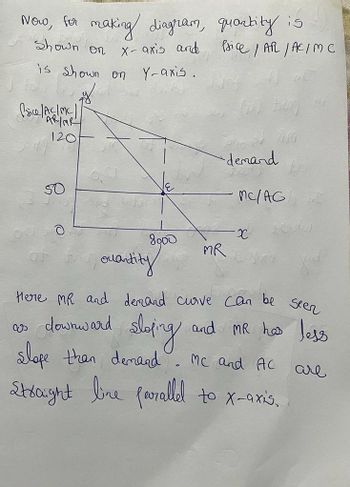 Now, for making diagram, quantity is
shown on x-axis and Price / AR / AC / MC
is shown on Y-axis.
y
Price/AC/MC/
AR/MR
120
demand
50
E
MC/AC
0
8000
x
quantity
MR
Here MR and demand curve can be seen
as downward sloping and MR has less
slope than demand. MC and AC are
straight line parallel to x-axis.